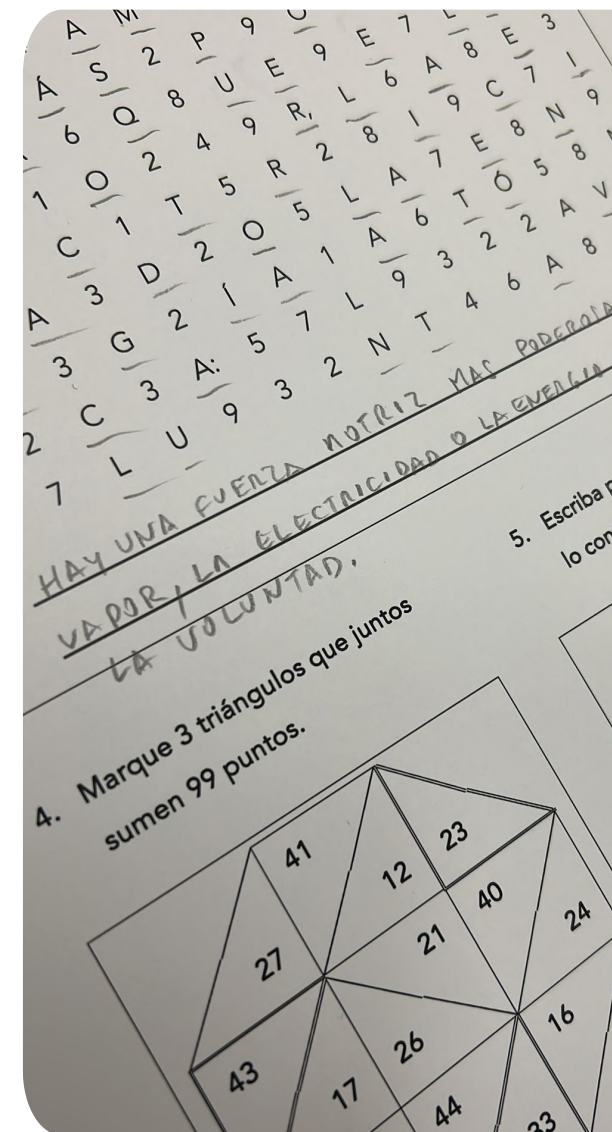 A M
A S 2 P 9
6 Q 8 U E 9 E 7
1 O 2 4 9 R, L 6 A 8 E 3
C 1 T 5 R 2 8 I 9 C 7 I
A 3 D 2 O 5 L A 7 E 8 N 9
3 G 2 Í A 1 A 6 T Ó 5 8
2 C 3 A: 5 7 L 9 3 2 2 A V
7 L U 9 3 2 N T 4 6 A 8
HAY UNA FUERZA MOTRIZ MAS PODEROSA
VAPOR, LA ELECTRICIDAD O LA ENERGIA
LA VOLUNTAD.
4. Marque 3 triángulos que juntos
sumen 99 puntos.
5. Escriba
lo
41
12
23
27
21
40
24
43
17
26
16
44
33